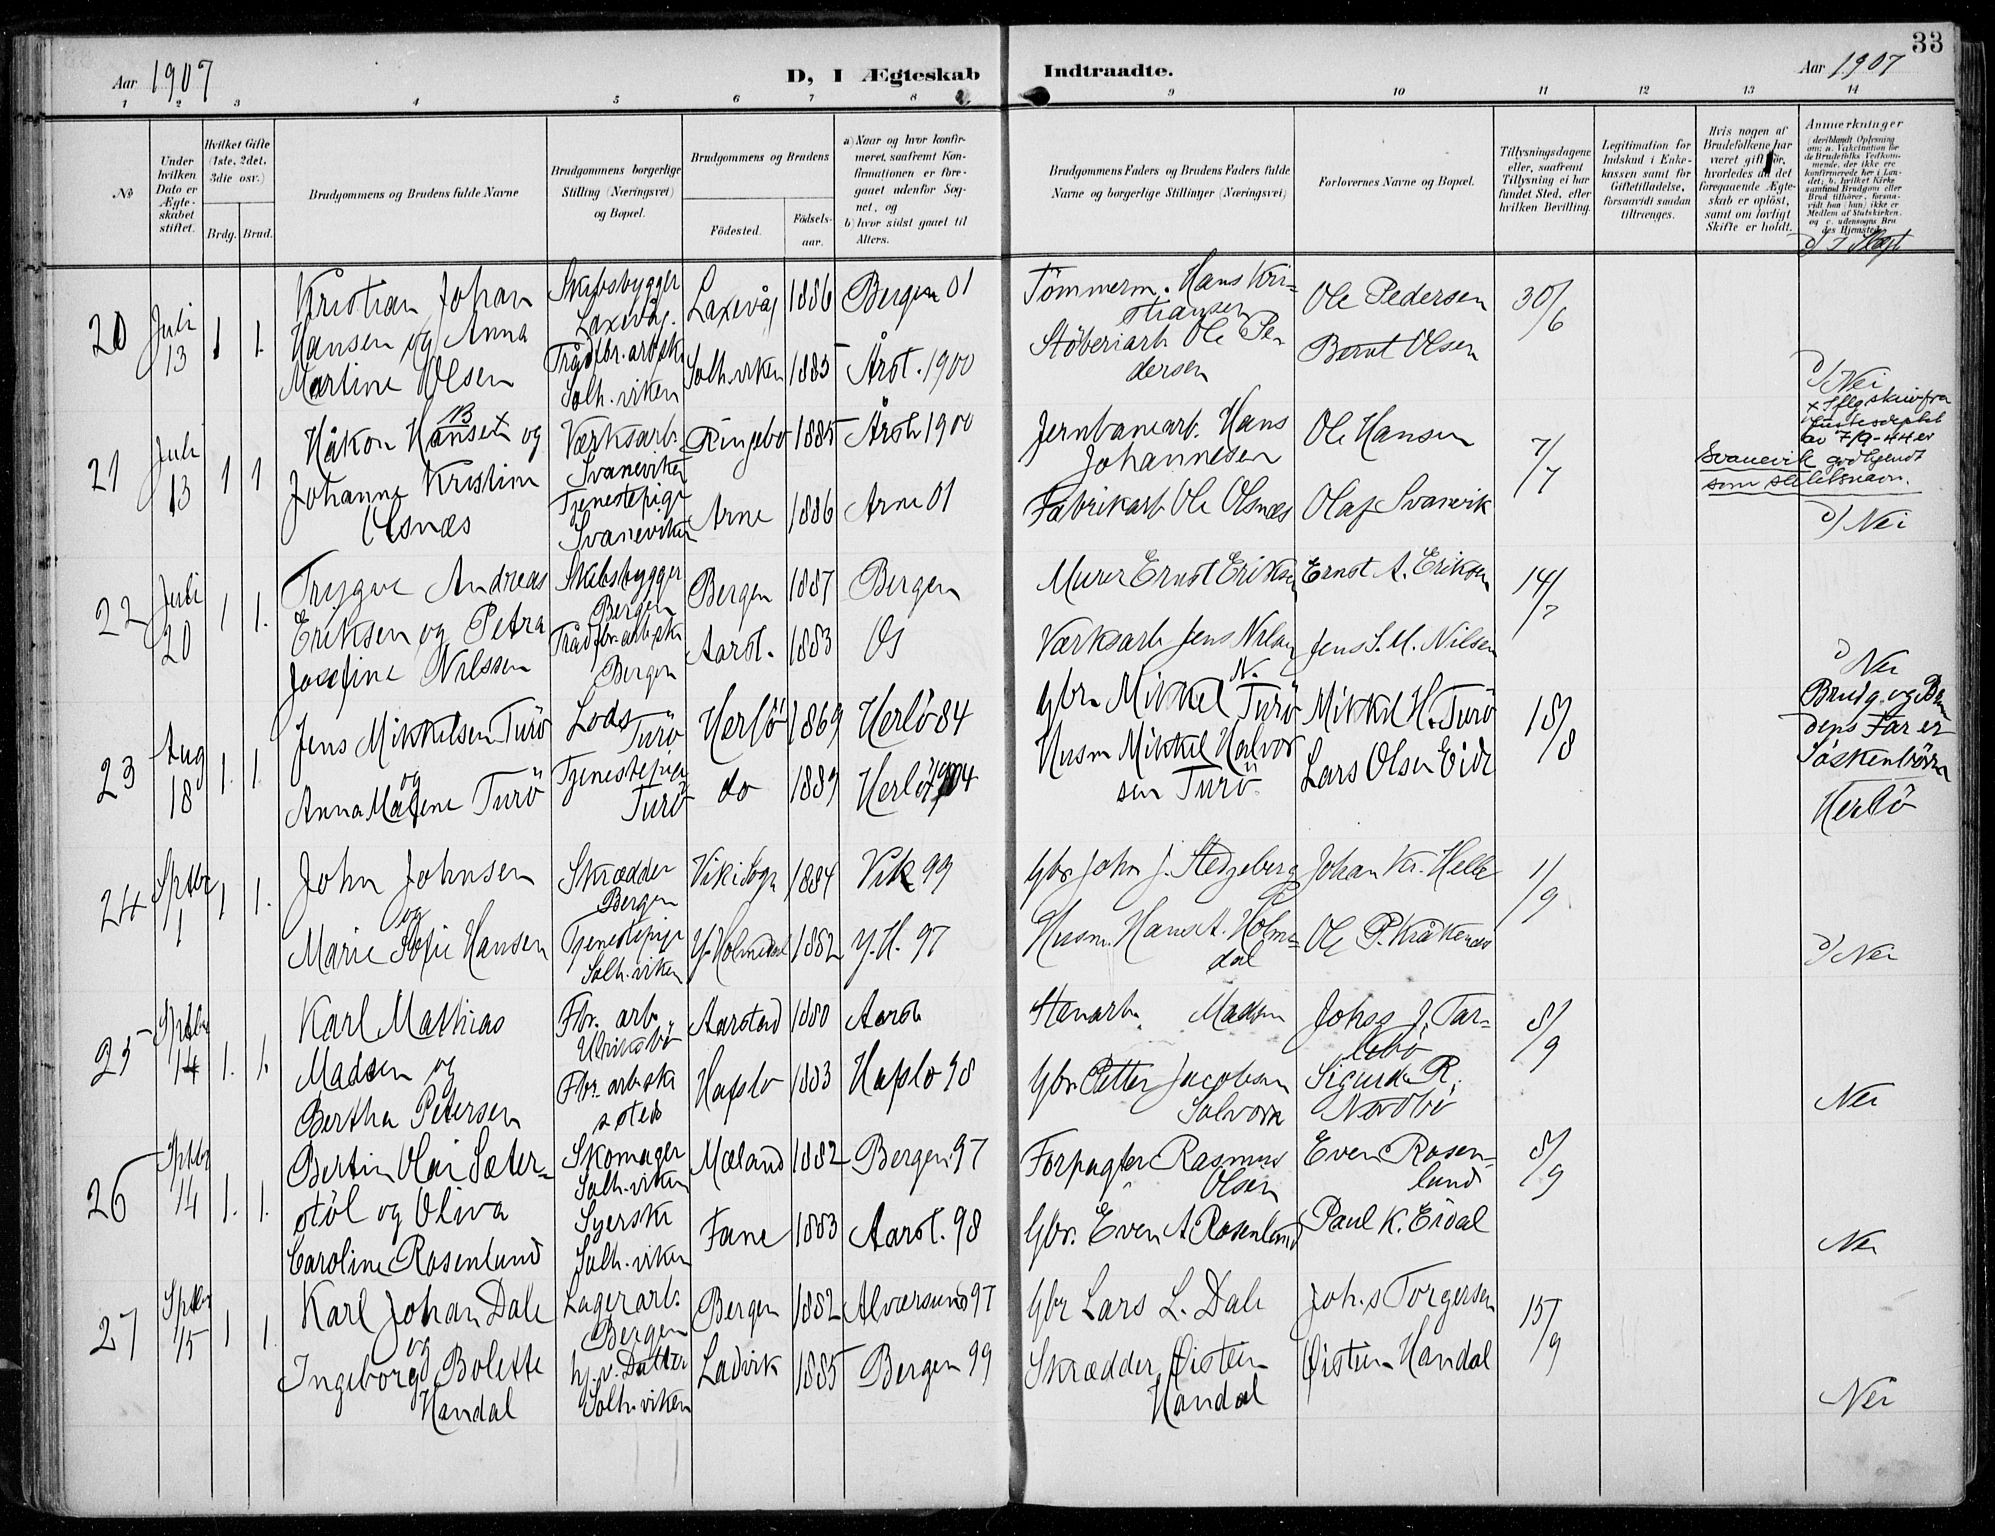 33
Aar 1907
D, I Ægteskab Indtraadte.
Aar 1907
1 2 3 4 5 6 7 8 9 10 11 12 13 14
No
Under hvilken Dato er Ægteskabet stiftet.
Hvilket Gifte (1ste, 2det, 3die osv.)
Brdg. Brud.
Brudgommens og Brudens fulde Navne
Brudgommens borgerlige Stilling (Næringsvei) og Bopæl.
Brudgommens og Brudens
Födested.
Födsels-aar.
a) Naar og hvor konfirmeret, saafremt Konfirmationen er foregaaet udenfor Sognet, og
b) hvor sidst gaaet til Alters.
Brudgommens Faders og Brudens Faders fulde Navne og borgerlige Stillinger (Næringsvei)
Forlovernes Navne og Bopæl.
Tillysningsdagene eller, saafremt Tillysning ei har fundet Sted, efter hvilken Bevilling.
Legitimation for Indskud i Enkekassen samt for Giftetilladelse, forsaavidt saadan tiltrænges.
Hvis nogen af Brudefolkene har været gift för, hvorledes da det foregaaende Ægteskab er oplöst, samt om lovligt Skifte er holdt.
Anmærkninger
20
Juli 13
1 1.
Kristian Johan
Hansen og Anna
Martine Olsen
Skibsbygger
Laxevåg.
Trådfbr. arb.sk
Solh.viken
Laxevåg 1886 Bergen 01
Solh.viken 1885 Årst. 1900
Tömmerm. Hans Kri-
stiansen
Støberiarb Ole Pe
dersen
Ole Pedersen
Bernt Olsen
30/6
d/ Nei
21
Juli 13
1 1
Håkon Hansen og
Johanne Kristine
Olsnæs
Værksarb.
Svaneviken
Tjenestepige
Svaneviken
Ringebo 1885 Årst. 1900
Arne 1886 Arne 01
Jernbanearb. Hans
Johannesen
Fabrikarb Ole Olsnæs
Ole Hansen
Olaf Svanevik
7/7
x Iflg skriv fra
Justisdeptet
av 7/9-44 er
Svanevik godkjendt
som slektsnavn.
d/ Nei
22
Juli 20
1 1.
Trygve Andreas
Eriksen og Petra
Josefine Nilssen
Skibsbygger
Bergen
Trådfbr.arb.sk
Bergen
Bergen 1887 Bergen
Aarst. 1883 Os
Murer Ernst Eriksen
Værksarb Jens Nilsen
Ernst A. Eriksen
Jens S. M. Nilsen
14/7
d/ Nei
23
Aug 18
1. 1.
Jens Mikkelsen Turö
og
Anna Malene Turö
Lods
Turö
Tjenestepige
Turö
Herlö 1869 Herlö 84
do 1889 Herlö 1904
Gbr. Mikkel N. Turö
Husm Mikkel Halvor
sen Turö
Mikkel H. Turö
Lars Olsen Eide
18/8
Brudg. og Bru
dens Far er
Söskenbörn
Herlö
24
Septbr 1
1 1.
John Johnsen
og
Marie Sofie Hansen
Skrædder
Bergen
Tjenestepige
Solh.viken
Vik i Sogn 1884 Vik 99
Y. Holmedal 1882 Y. H. 97
Gbr John J. Stedjeberg
Husm. Hans A. Holme-
dal
Johan Kr. Helle
Ole P. Kråkenes
1/9
d/ Nei
25
Septbr 14
1. 1.
Karl Mathias
Madsen og
Bertha Petersen
Fbr. arb.
Ulriksbö
Fbr. arb.sk
s steds
Aarstad 1880 Aarst
Hafslo 1883 Hafslo 98
Stenarb. Madsen
Gbr Petter Jacobsen
Solvorn
Johs J. Tar-
lebö
Sigurd R.
Nordbö
8/9
Nei
26
Septbr 14
1. 1.
Bertin Olai Sæter-
støl og Oliva
Caroline Rosenlund
Skomager
Solh.viken
Syerske
Solh.viken
Mæland 1882 Bergen 97
Fane 1883 Aarst. 98
Forpagter Rasmus
Olsen
Gbr. Even A Rosenlund
Even Rosen-
lund
Paul K. Eidal
8/9
Nei
27
Septbr 15
1 1.
Karl Johan Dale
og
Ingeborg Bolette
Handal
Lagerarb.
Bergen
hj.v. Datter
Solh.viken
Bergen 1882 Alværsund 97
Ladvik 1885 Bergen 99
Gbr Lars L. Dale
Skrædder Øistein
Handal
Joh.s Torgersen
Øistein Handal
15/9
Nei